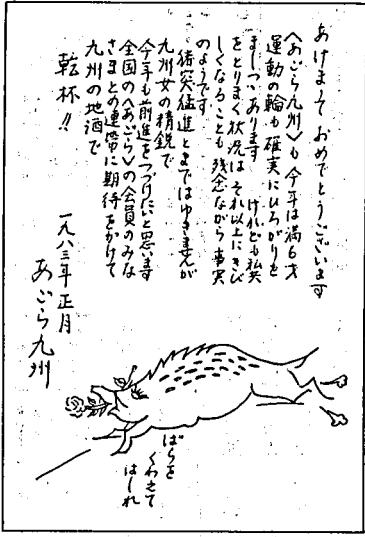 あけましておめでとうございます
〈あごら九州〉も今年は満6才
運動の輪も確実にひろがりを
ましつつあります けれども私共
をとりまく状況はそれ以上にきび
しくなることも残念ながら事実
のようです
猪突猛進とまではゆきませんが
九州女の精鋭で
今年も前進をつづけたいと思います
全国の〈あごら〉の会員のみな
さまとの連帯に期待をかけて
九州の地酒で
乾杯!!
一九八三年正月
あごら九州
ばらを
くわえて
はしれ